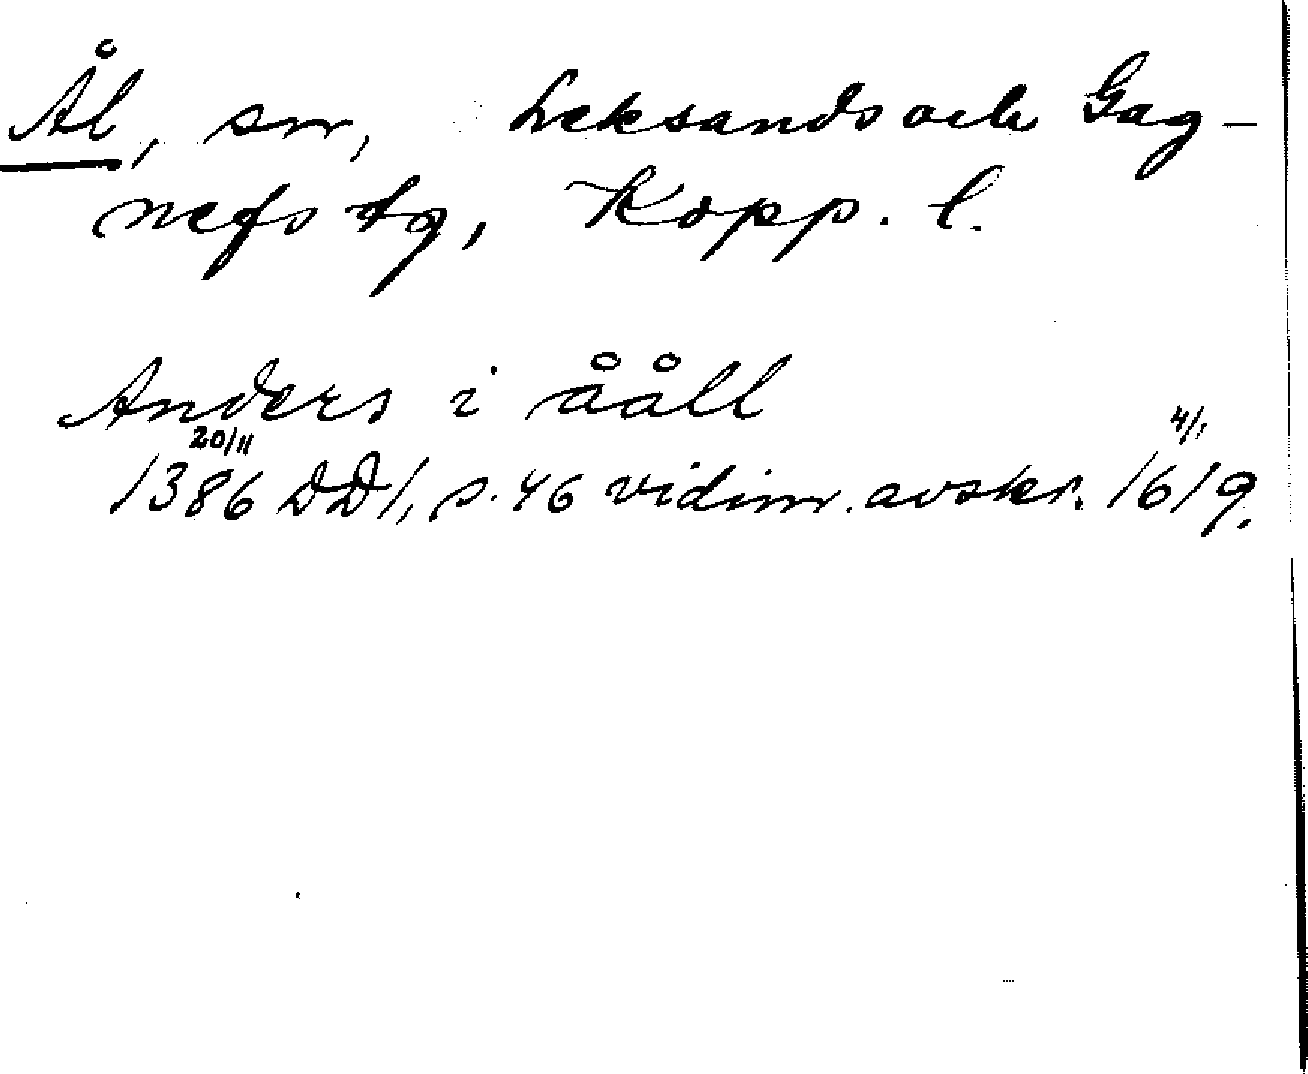 Ål, sn, Leksands och Gag-
nefs tg, Kopp. l.
Anders i ååll
20/11 4/1
1386 DD 1, s. 46 vidim. avskr. 1619.